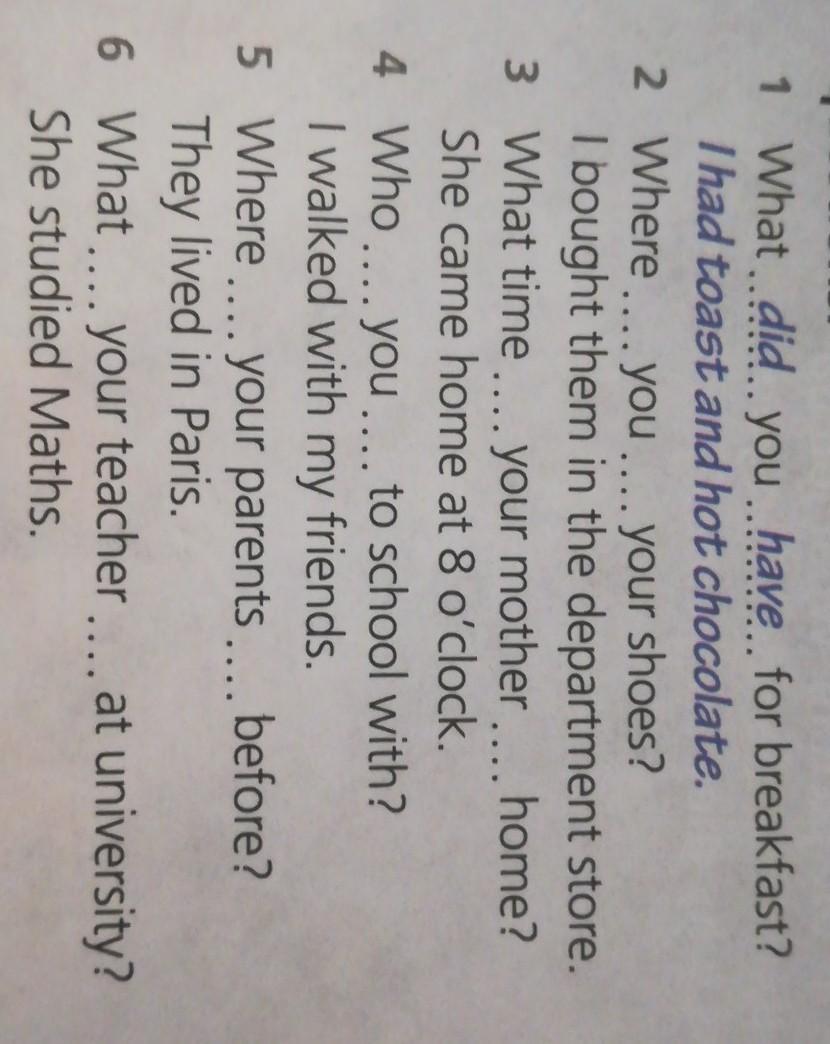 1 What ..did.. you ..have.. for breakfast?
I had toast and hot chocolate.
2 Where .... you .... your shoes?
I bought them in the department store.
3 What time .... your mother .... home?
She came home at 8 o'clock.
4 Who .... you .... to school with?
I walked with my friends.
5 Where .... your parents .... before?
They lived in Paris.
6 What .... your teacher .... at university?
She studied Maths.